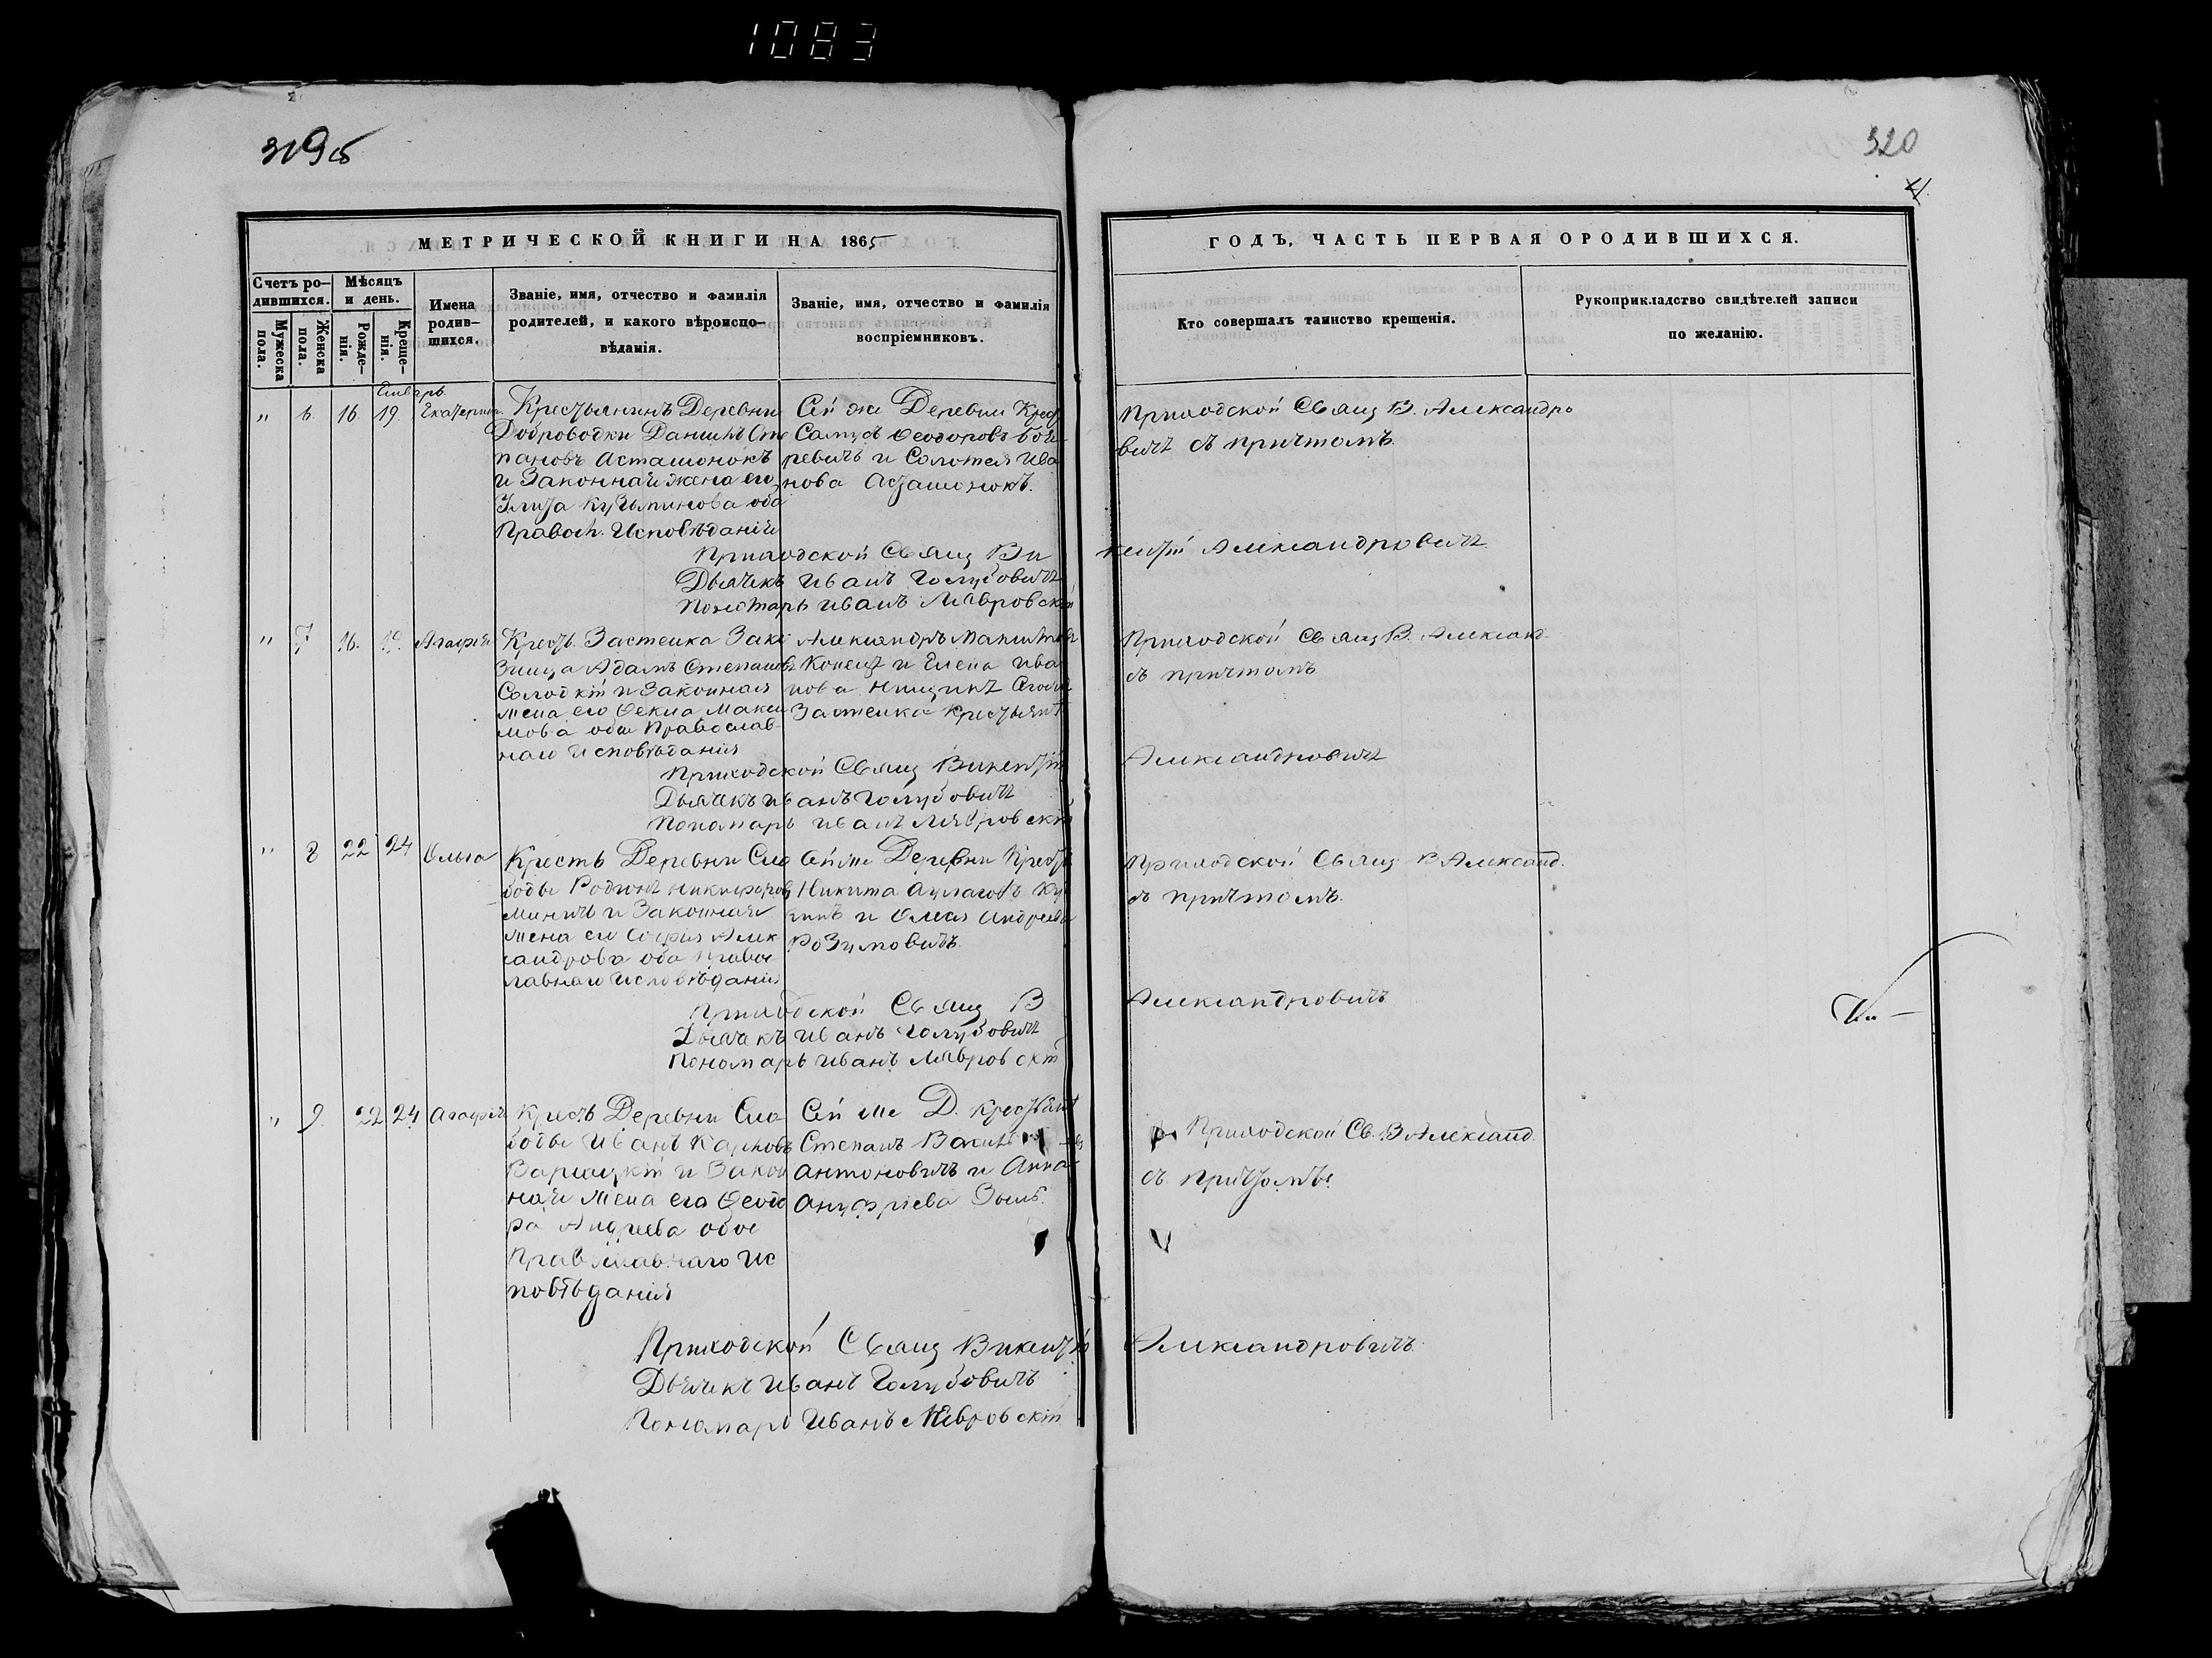 1083
319об
320
4.
МЕТРИЧЕСКОЙ КНИГИ НА 1865
ГОДЪ, ЧАСТЬ ПЕРВАЯ О РОДИВШИХСЯ.
Счетъ ро-
дившихся.
Мужеска
пола.
Женска
пола.
Мѣсяцъ
и день.
Рожде-
нія.
Креще-
нія.
Имена
родив-
шихся.
Званіе, имя, отчество и фамилія
родителей, и какого вѣроиспо-
вѣданія.
Званіе, имя, отчество и фамилія
воспріемниковъ.
Кто совершалъ таинство крещенія.
Рукоприкладство свидѣтелей записи
по желанію.
Январь
" 6. 16. 19. Екатерина
Крестьянинъ Деревни
Доброводки Даніилъ Сте
пановъ Асташонокъ
и Законная жена его
Кузьминова оба
Правосл. Исповѣданія
Сей же Деревни Крест
Самусь Ѳеодоровъ
ревичъ и Соломея Ива
нова Асташонокъ.
Приходской Свящ В. Александро
вичъ съ причтомъ
Приходской Свящ Ви
кентій Александровичъ
Дьячекъ Иванъ Голубовичъ
Пономарь Иванъ Мавровскій
" 7 16. 19. Агафія
Крестъ. Застенка Зака
Адамъ Степановъ
Солодкій и Законная
жена его Ѳекла Макси
мова оба Православ-
наго Исповѣданія
Александръ
и Елена Ива
нова
Застенка Крестьяне
Приходской Свящ В. Александ-
съ причтомъ
Приходской Свящ Викентій
Александровичъ
Дьячекъ Иванъ Голубовичъ
Пономарь Иванъ Мавровскій
" 8 22 24 Ольга
Крестъ Деревни Сло
боды Родіонъ Никифоровъ
и Законная
жена его Софія Алек
сандрова оба Правос
лавнаго Исповѣданія
Сей же Деревни Крестъ
Никита
и Андреева
Розумовичъ
Приходской Свящ В Александ.
съ причтомъ.
Приходской Свящ В
Александровичъ
Дьячекъ Иванъ Голубовичъ
Пономарь Иванъ Мавровскій
" 9. 22 24 Агафія
Крестъ Деревни Сло
боды Иванъ Карповъ
Варшацкій и Закон
ная жена его Ѳеодо
ра Андреева обое
Православнаго Ис
повѣданія
Сей же Д. Крестьяне
Степанъ
Антоновичъ и Анна
Ануфріева
Приходской Св. В Александ.
съ Причтомъ
Приходской Свящ Викентій
Александровичъ
Дьячекъ Иванъ Голубовичъ
Пономарь Иванъ Мавровскій